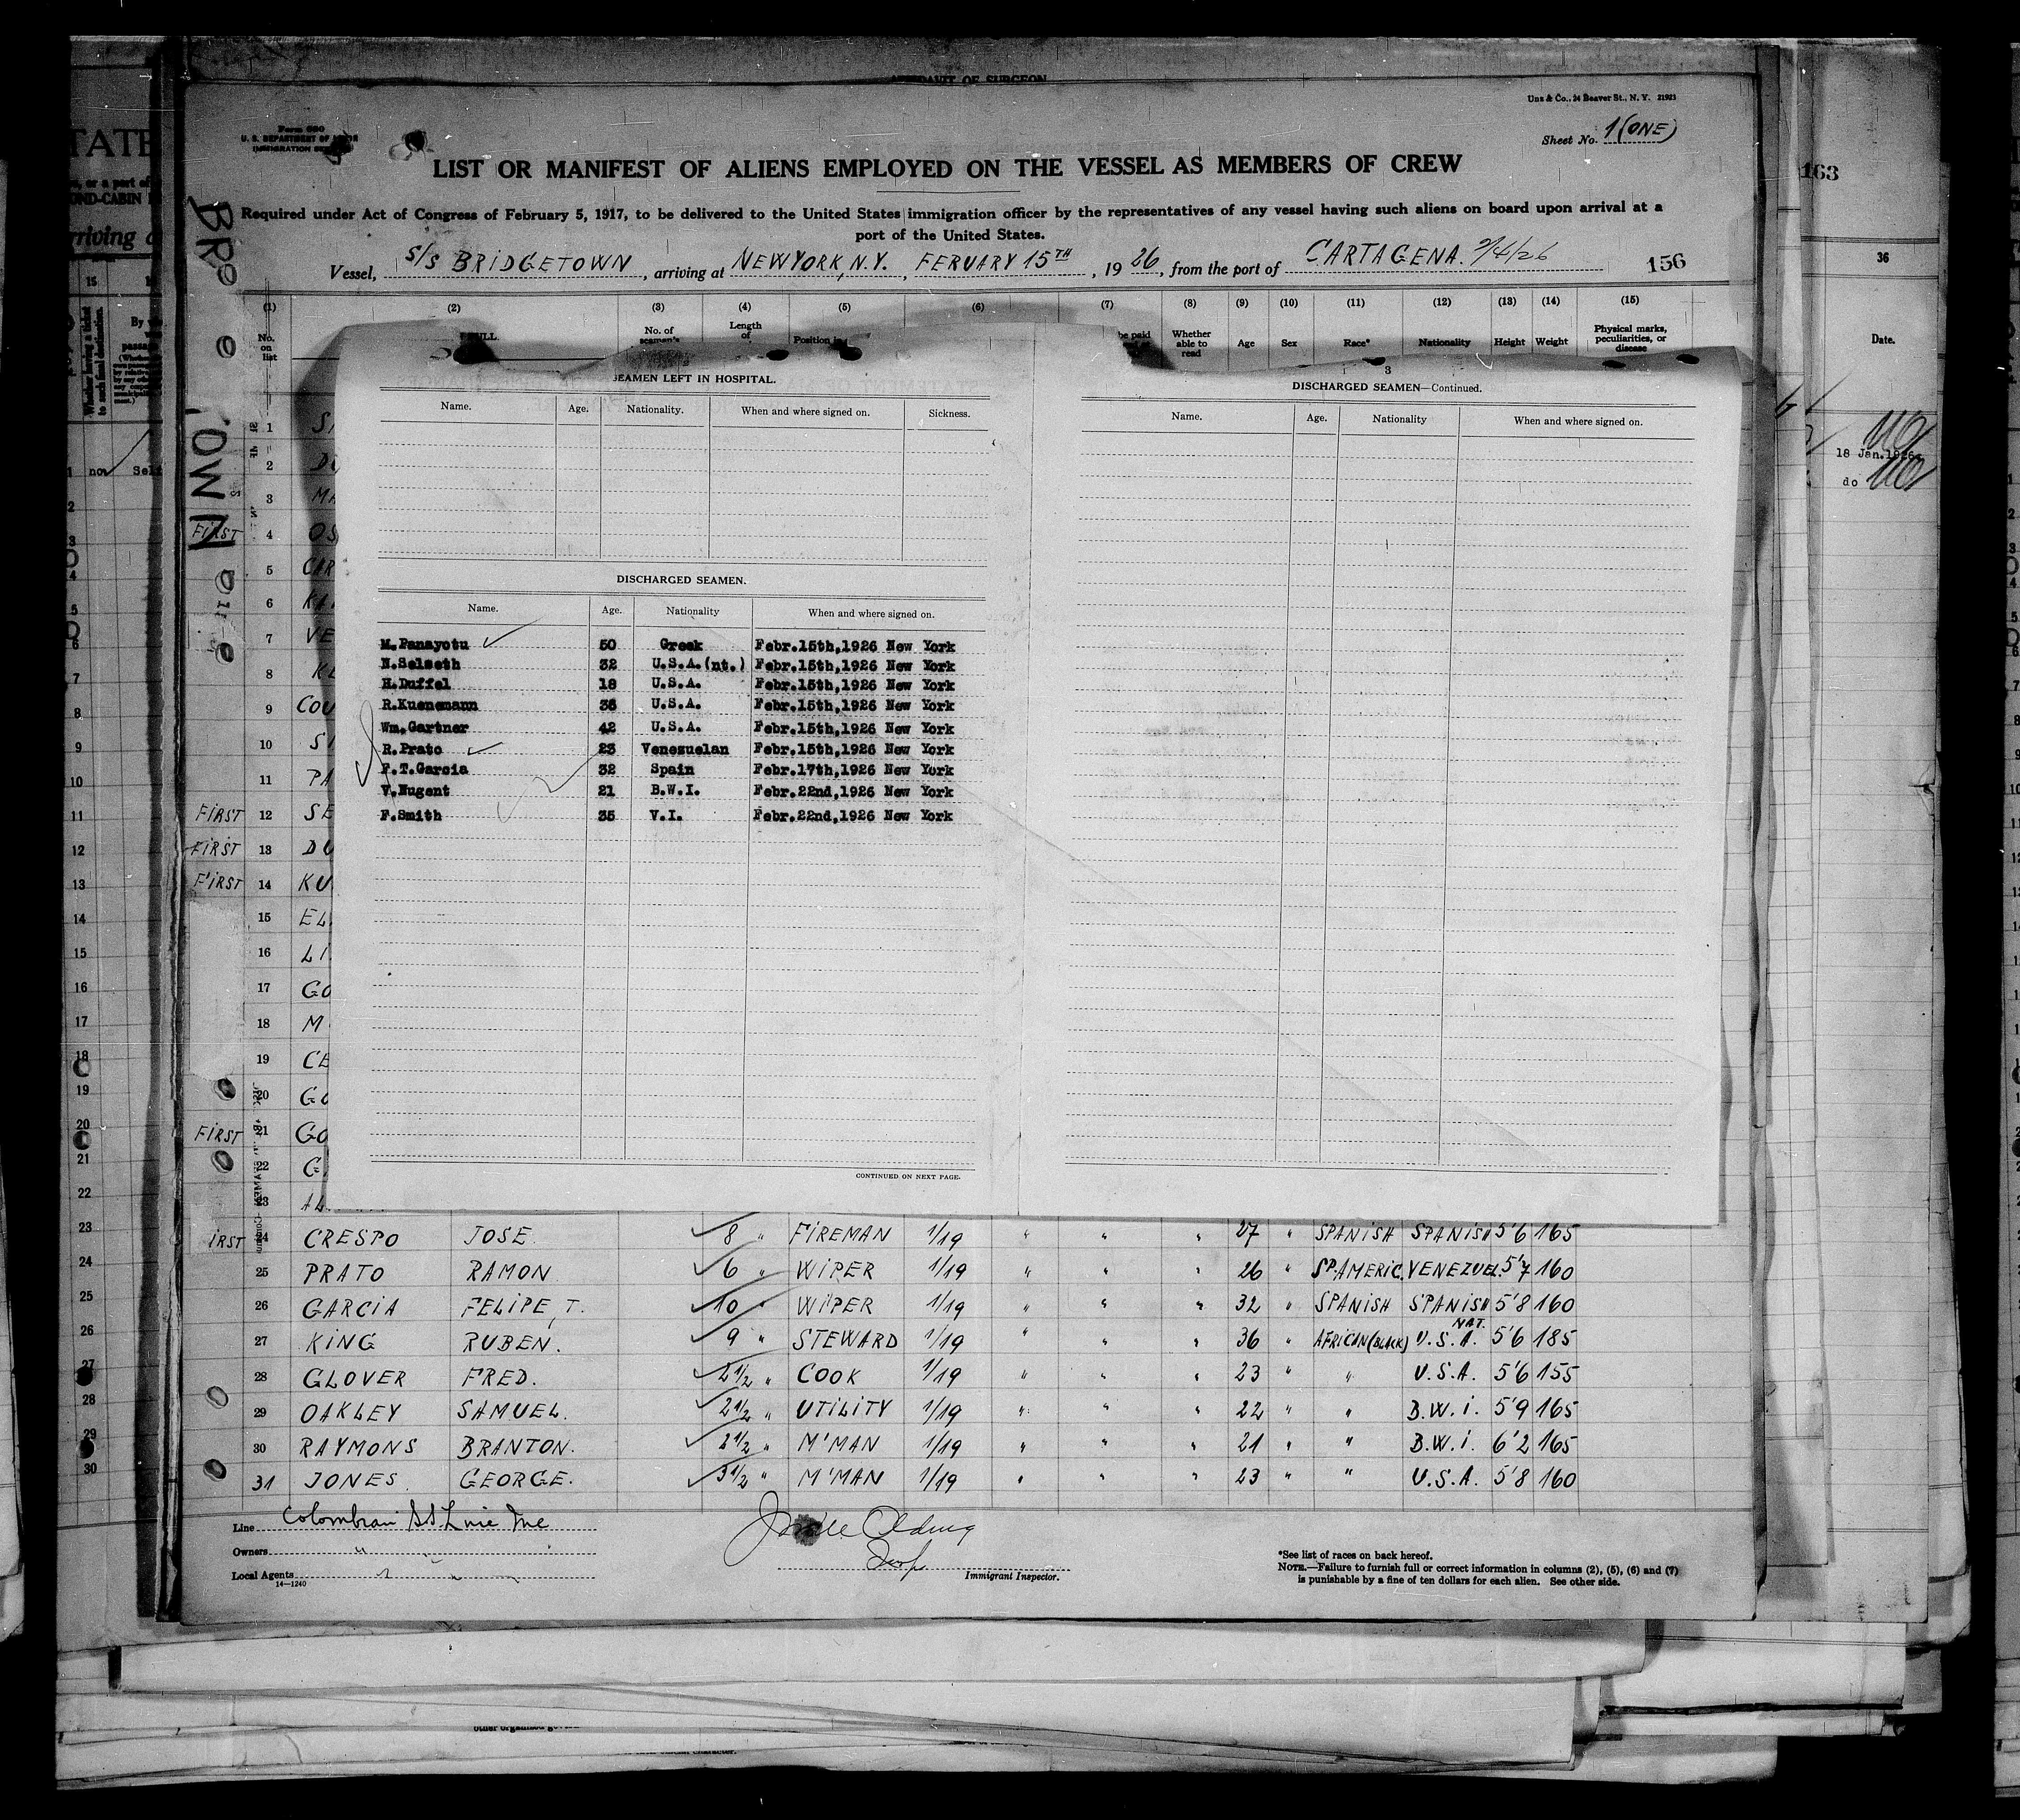 AFFIDAVIT OF SURGEON
Uns & Co., 24 Beaver St., N. Y. 21921
Form 680
U. S. DEPARTMENT OF LABOR
IMMIGRATION SERVICE
Sheet No. 1 (ONE)
LIST OR MANIFEST OF ALIENS EMPLOYED ON THE VESSEL AS MEMBERS OF CREW
Required under Act of Congress of February 5, 1917, to be delivered to the United States immigration officer by the representatives of any vessel having such aliens on board upon arrival at a
port of the United States.
Vessel, S/S BRIDGETOWN, arriving at NEW YORK, N.Y., FERUARY 15TH, 1926, from the port of CARTAGENA. 2/4/26
156
(1) (2) (3) (4) (5) (6) (7) (8) (9) (10) (11) (12) (13) (14) (15)
No. on list
FULL
No. of seaman's
Length of
Position in
be paid
Whether able to read
Age
Sex
Race*
Nationality
Height
Weight
Physical marks, peculiarities, or disease
SEAMEN LEFT IN HOSPITAL.
Name. Age. Nationality. When and where signed on. Sickness.
DISCHARGED SEAMEN.
Name. Age. Nationality When and where signed on.
M.Panayotu 50 Greek Febr.15th,1926 New York
N.Selseth 32 U.S.A.(nt.) Febr.15th,1926 New York
H.Duffel 18 U.S.A. Febr.15th,1926 New York
R.Kuenemann 36 U.S.A. Febr.15th,1926 New York
Wm.Gartner 42 U.S.A. Febr.15th,1926 New York
R.Prato 23 Venezuelan Febr.15th,1926 New York
F.T.Garcia 32 Spain Febr.17th,1926 New York
V.Nugent 21 B.W.I. Febr.22nd,1926 New York
F.Smith 35 V.I. Febr.22nd,1926 New York
CONTINUED ON NEXT PAGE.
3
DISCHARGED SEAMEN—Continued.
Name. Age. Nationality When and where signed on.
1
2
3
FIRST 4
5
6
7
8
9
10
11
FIRST 12
FIRST 13
FIRST 14
15
16
17
18
19
20
FIRST 21
22
23
24 CRESPO JOSE 8 " FIREMAN 1/19 " " " 27 " SPANISH SPANISH 5'6 165
25 PRATO RAMON 6 " WIPER 1/19 " " " 26 " SP.AMERIC. VENEZUEL. 5'7 160
26 GARCIA FELIPE, T. 10 " WIPER 1/19 " " " 32 " SPANISH SPANISH 5'8 160
27 KING RUBEN. 9 " STEWARD 1/19 " " " 36 " AFRICAN(BLACK) NAT. U.S.A. 5'6 185
28 GLOVER FRED. 2 1/2 " COOK 1/19 " " " 23 " " U.S.A. 5'6 155
29 OAKLEY SAMUEL. 2 1/2 " UTILITY 1/19 " " " 22 " " B.W.I. 5'9 165
30 RAYMONS BRANTON. 2 1/2 " M'MAN 1/19 " " " 21 " " B.W.I. 6'2 165
31 JONES GEORGE. 3 1/2 " M'MAN 1/19 " " " 23 " " U.S.A. 5'8 160
Line Colombian S.S. Line Inc
Owners " "
Local Agents " "
14—1240
Immigrant Inspector.
*See list of races on back hereof.
NOTE.—Failure to furnish full or correct information in columns (2), (5), (6) and (7)
is punishable by a fine of ten dollars for each alien. See other side.
163
36
Date.
18 Jan.1926
do